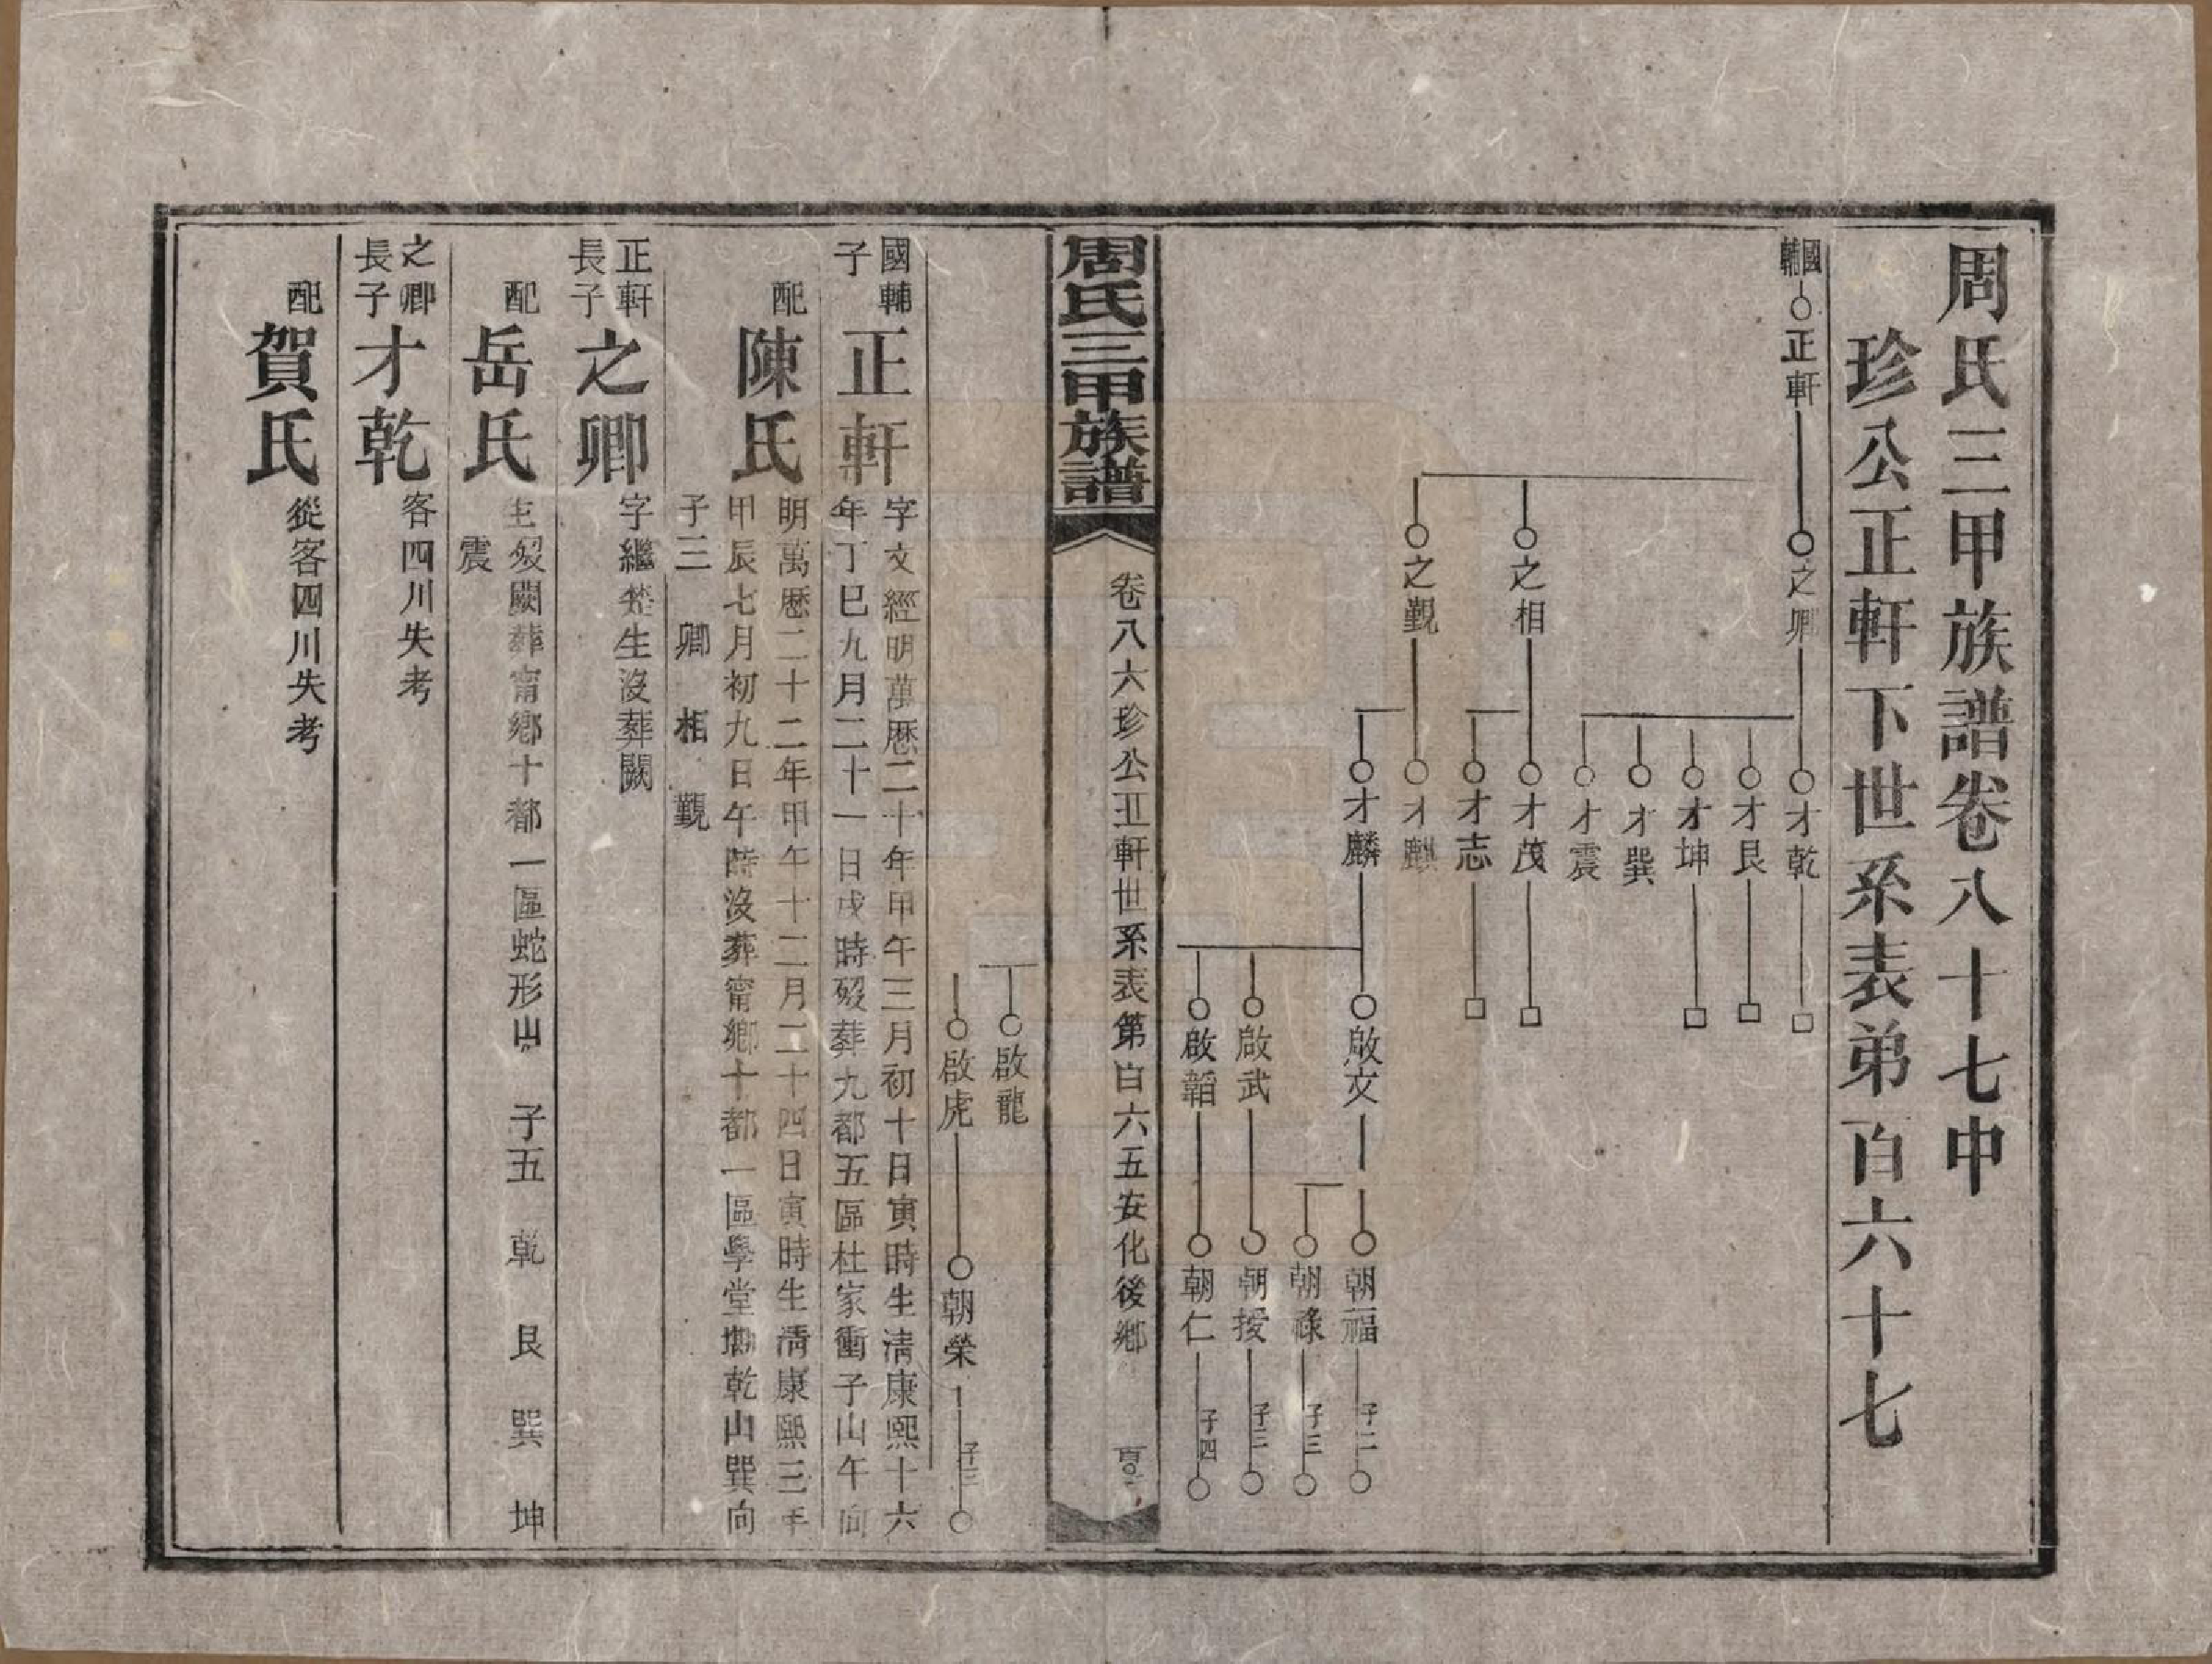 周氏三甲族譜卷八十七中
珍公正軒下世系表弟百六十七
國輔
正軒
之卿
之相
之觐
才乾
才艮
才坤
才巽
才震
才茂
才志
才麒
才麟
啟文
啟武
啟韜
朝福
朝祿
朝授
朝仁
子二
子三
子三
子四
周氏三甲族譜
卷八六珍公正軒世系表第百六五安化後鄉
啟龍
啟虎
朝榮
子三
國輔子
正軒
字文經明萬歷二十年甲午三月初十日寅時生清康熙十六
年丁巳九月二十一日戌時歿葬九都五區杜家衝子山午向
配
陳氏
明萬歷二十二年甲午十二月二十四日寅時生清康熙三年
甲辰七月初九日午時沒葬甯鄉十都一區學堂坳乾山巽向
子三 卿 相 觐
正軒長子
之卿
字繼楚生沒葬闕
配
岳氏
生歿闕葬甯鄉十都一區蛇形山 子五 乾 艮 巽 坤
震
之卿長子
才乾
客四川失考
配
賀氏
從客四川失考